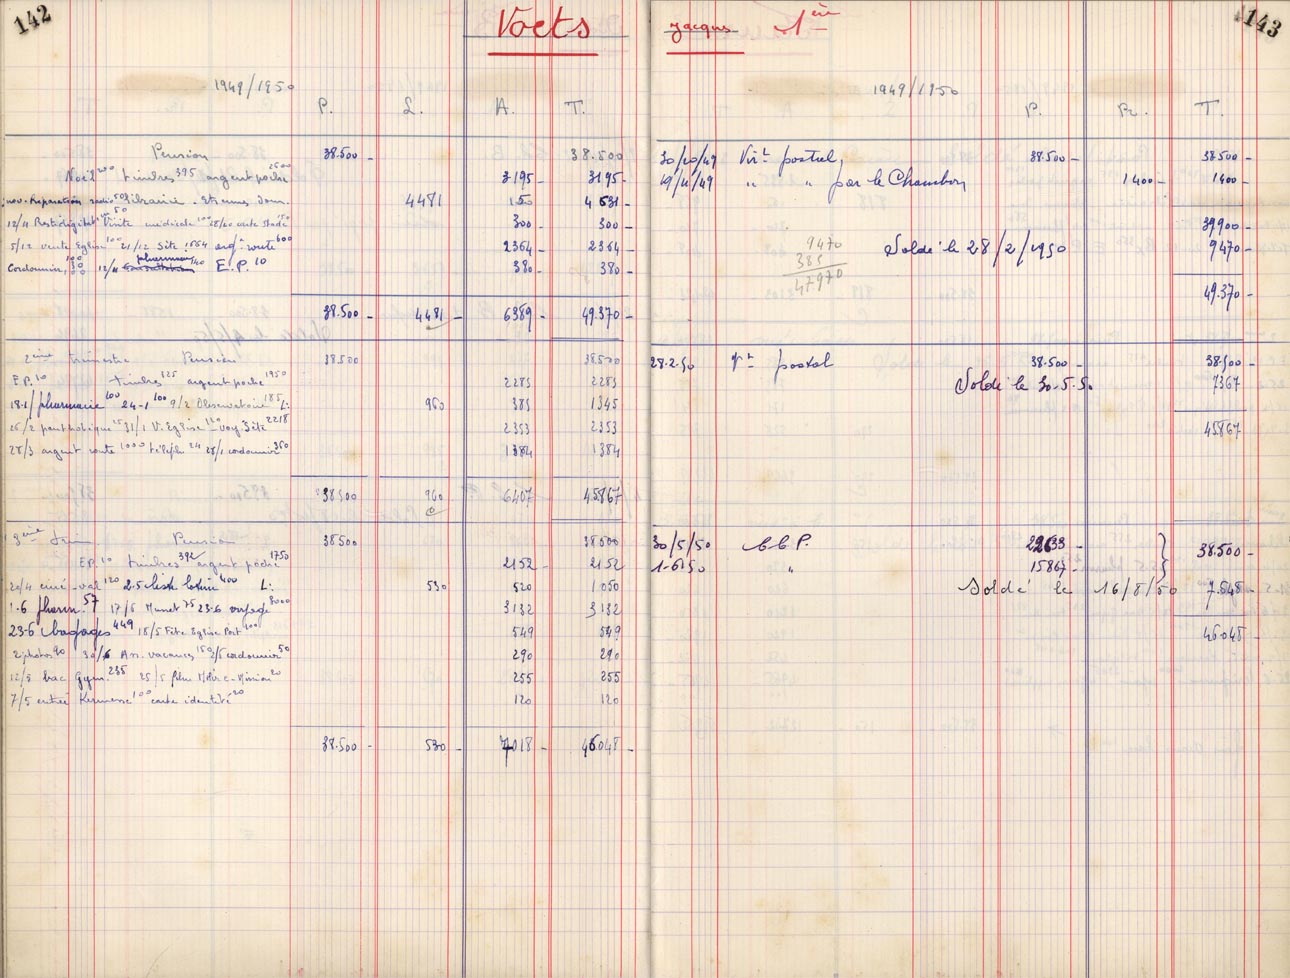 142
Voets
1949/1950
P. L. A. T.
Pension 38.500 - 38.500
Noël 200 timbres 395 argent poche 2500 3195 - 3195 -
nov. Réparation radio 50 librairie. Etrennes dom. 4481 150 4631 -
12/11 Visite médicale 100 carte stade 300 - 300 -
5/12 vente Eglise 100 21/12 Sète 1564 arg. route 600 2364 - 2364 -
Cordonnier, 12/11 pharmacie E.P. 10 380 - 380 -
38.500 - 4481 - 6389 - 49.370 -
2ème trimestre Pension 38.500 38.500
E.P. 10 timbres 325 argent poche 1950 2285 2285
18-1/ pharmacie 100 24-1 100 9/2 Observatoire 185 L: 960 385 1345
26/2 31/1 V. Eglise voy. Sète 2218 2353 2353
28/3 argent route 1000 téléph. 24 28/1 cordonnier 360 1384 1384
38500 960 6407 45867
3ème trim. Pension 38500 38500
E.P. 10 timbres 392 argent poche 1750 2152 2152
20/4 ciné-val 120 2.5 400 L: 530 520 1050
1.6 pharm. 57 17/5 75 23.6 voyage 3000 3132 3132
23-6 bagages 449 18/5 Fête Eglise Prot 100 549 549
2 photos 90 30/6 Ass. vacances 150 2/5 cordonnier 50 290 290
12/5 bac Gym. 235 25/5 film 20 255 255
7/5 entrée Kermesse 100 carte identité 20 120 120
38.500 - 530 - 7018 - 46.048 -
143
Jacques 1ère
1949/1950
P. R. T.
30/10/49 Virt postal, 38.500 - 38.500 -
19/11/49 " " par le Chambon 1400 - 1400 -
39900 -
9470
385
47970
Soldé le 28/2/1950 9470 -
49.370 -
28.2.50 Vt postal 38.500 - 38.500 -
Soldé le 30.5.50 7367
45867
30/5/50 C.C.P. 22633 - 38.500 -
1-6-50 " 15867 -
Soldé le 16/8/50 7.548 -
46.048 -